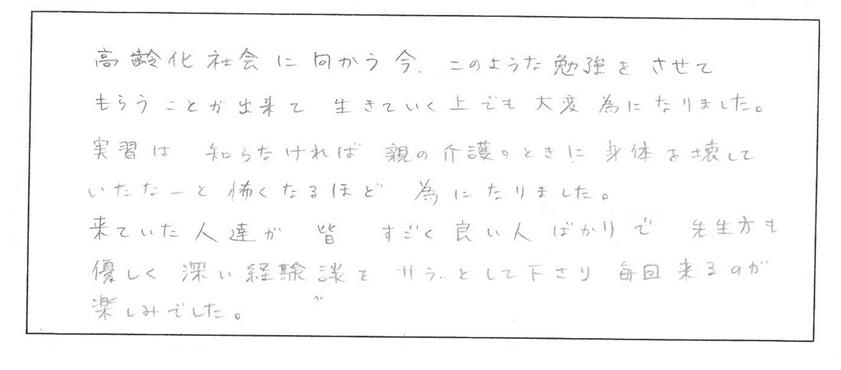 高齢化社会に向かう今、このような勉強をさせて
もらうことが出来て 生きていく上でも大変為になりました。
実習は 知らなければ 親の介護のときに身体を壊して
いたなーと怖くなるほど 為になりました。
来ていた人達が 皆 すごく良い人ばかりで 先生方も
優しく 深い経験談を として下さり 毎回来るのが
楽しみでした。